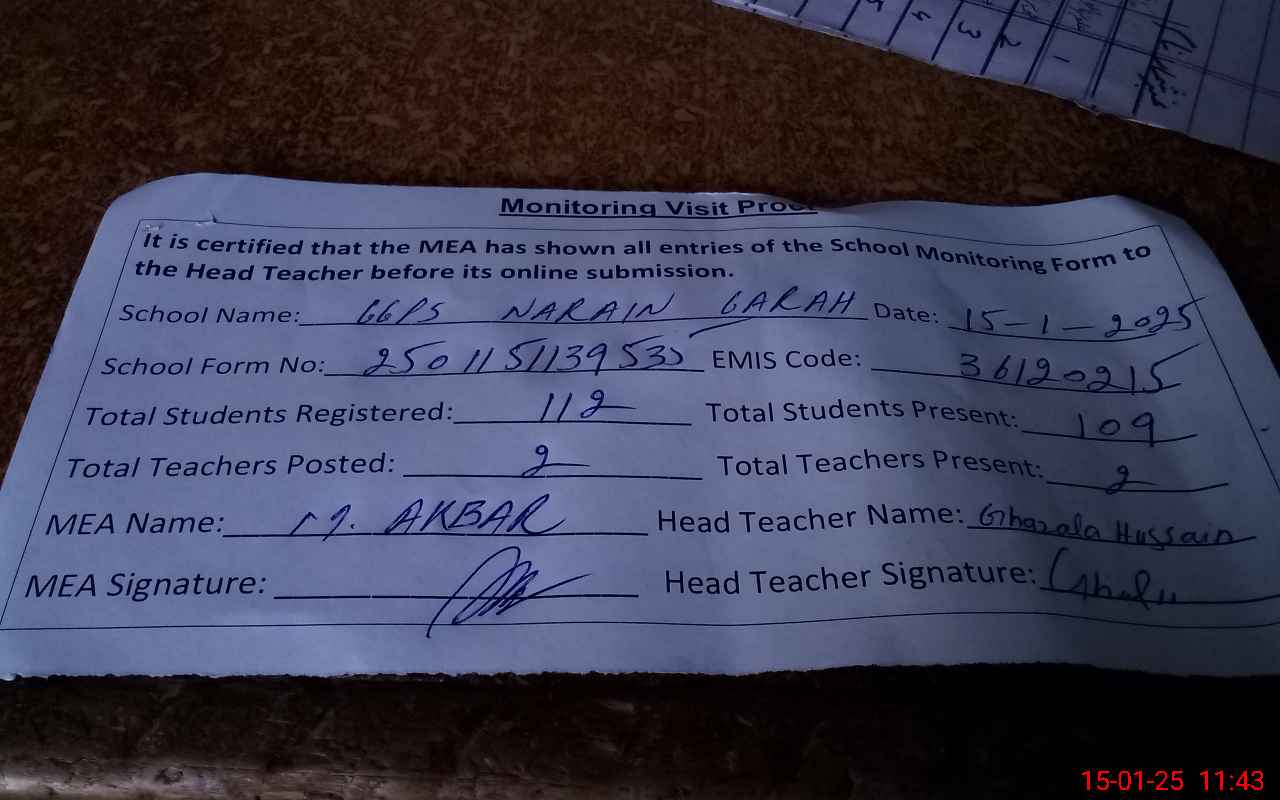 5 4 3 2 1
Monitoring Visit Proof
It is certified that the MEA has shown all entries of the School Monitoring Form to
the Head Teacher before its online submission.
School Name: GGPS NARAIN GARAH Date: 15-1-2025
School Form No: 2501151139535 EMIS Code: 36120215
Total Students Registered: 112 Total Students Present: 109
Total Teachers Posted: 2 Total Teachers Present: 2
MEA Name: M. AKBAR Head Teacher Name: Ghazala Hussain
MEA Signature: Head Teacher Signature:
15-01-25 11:43